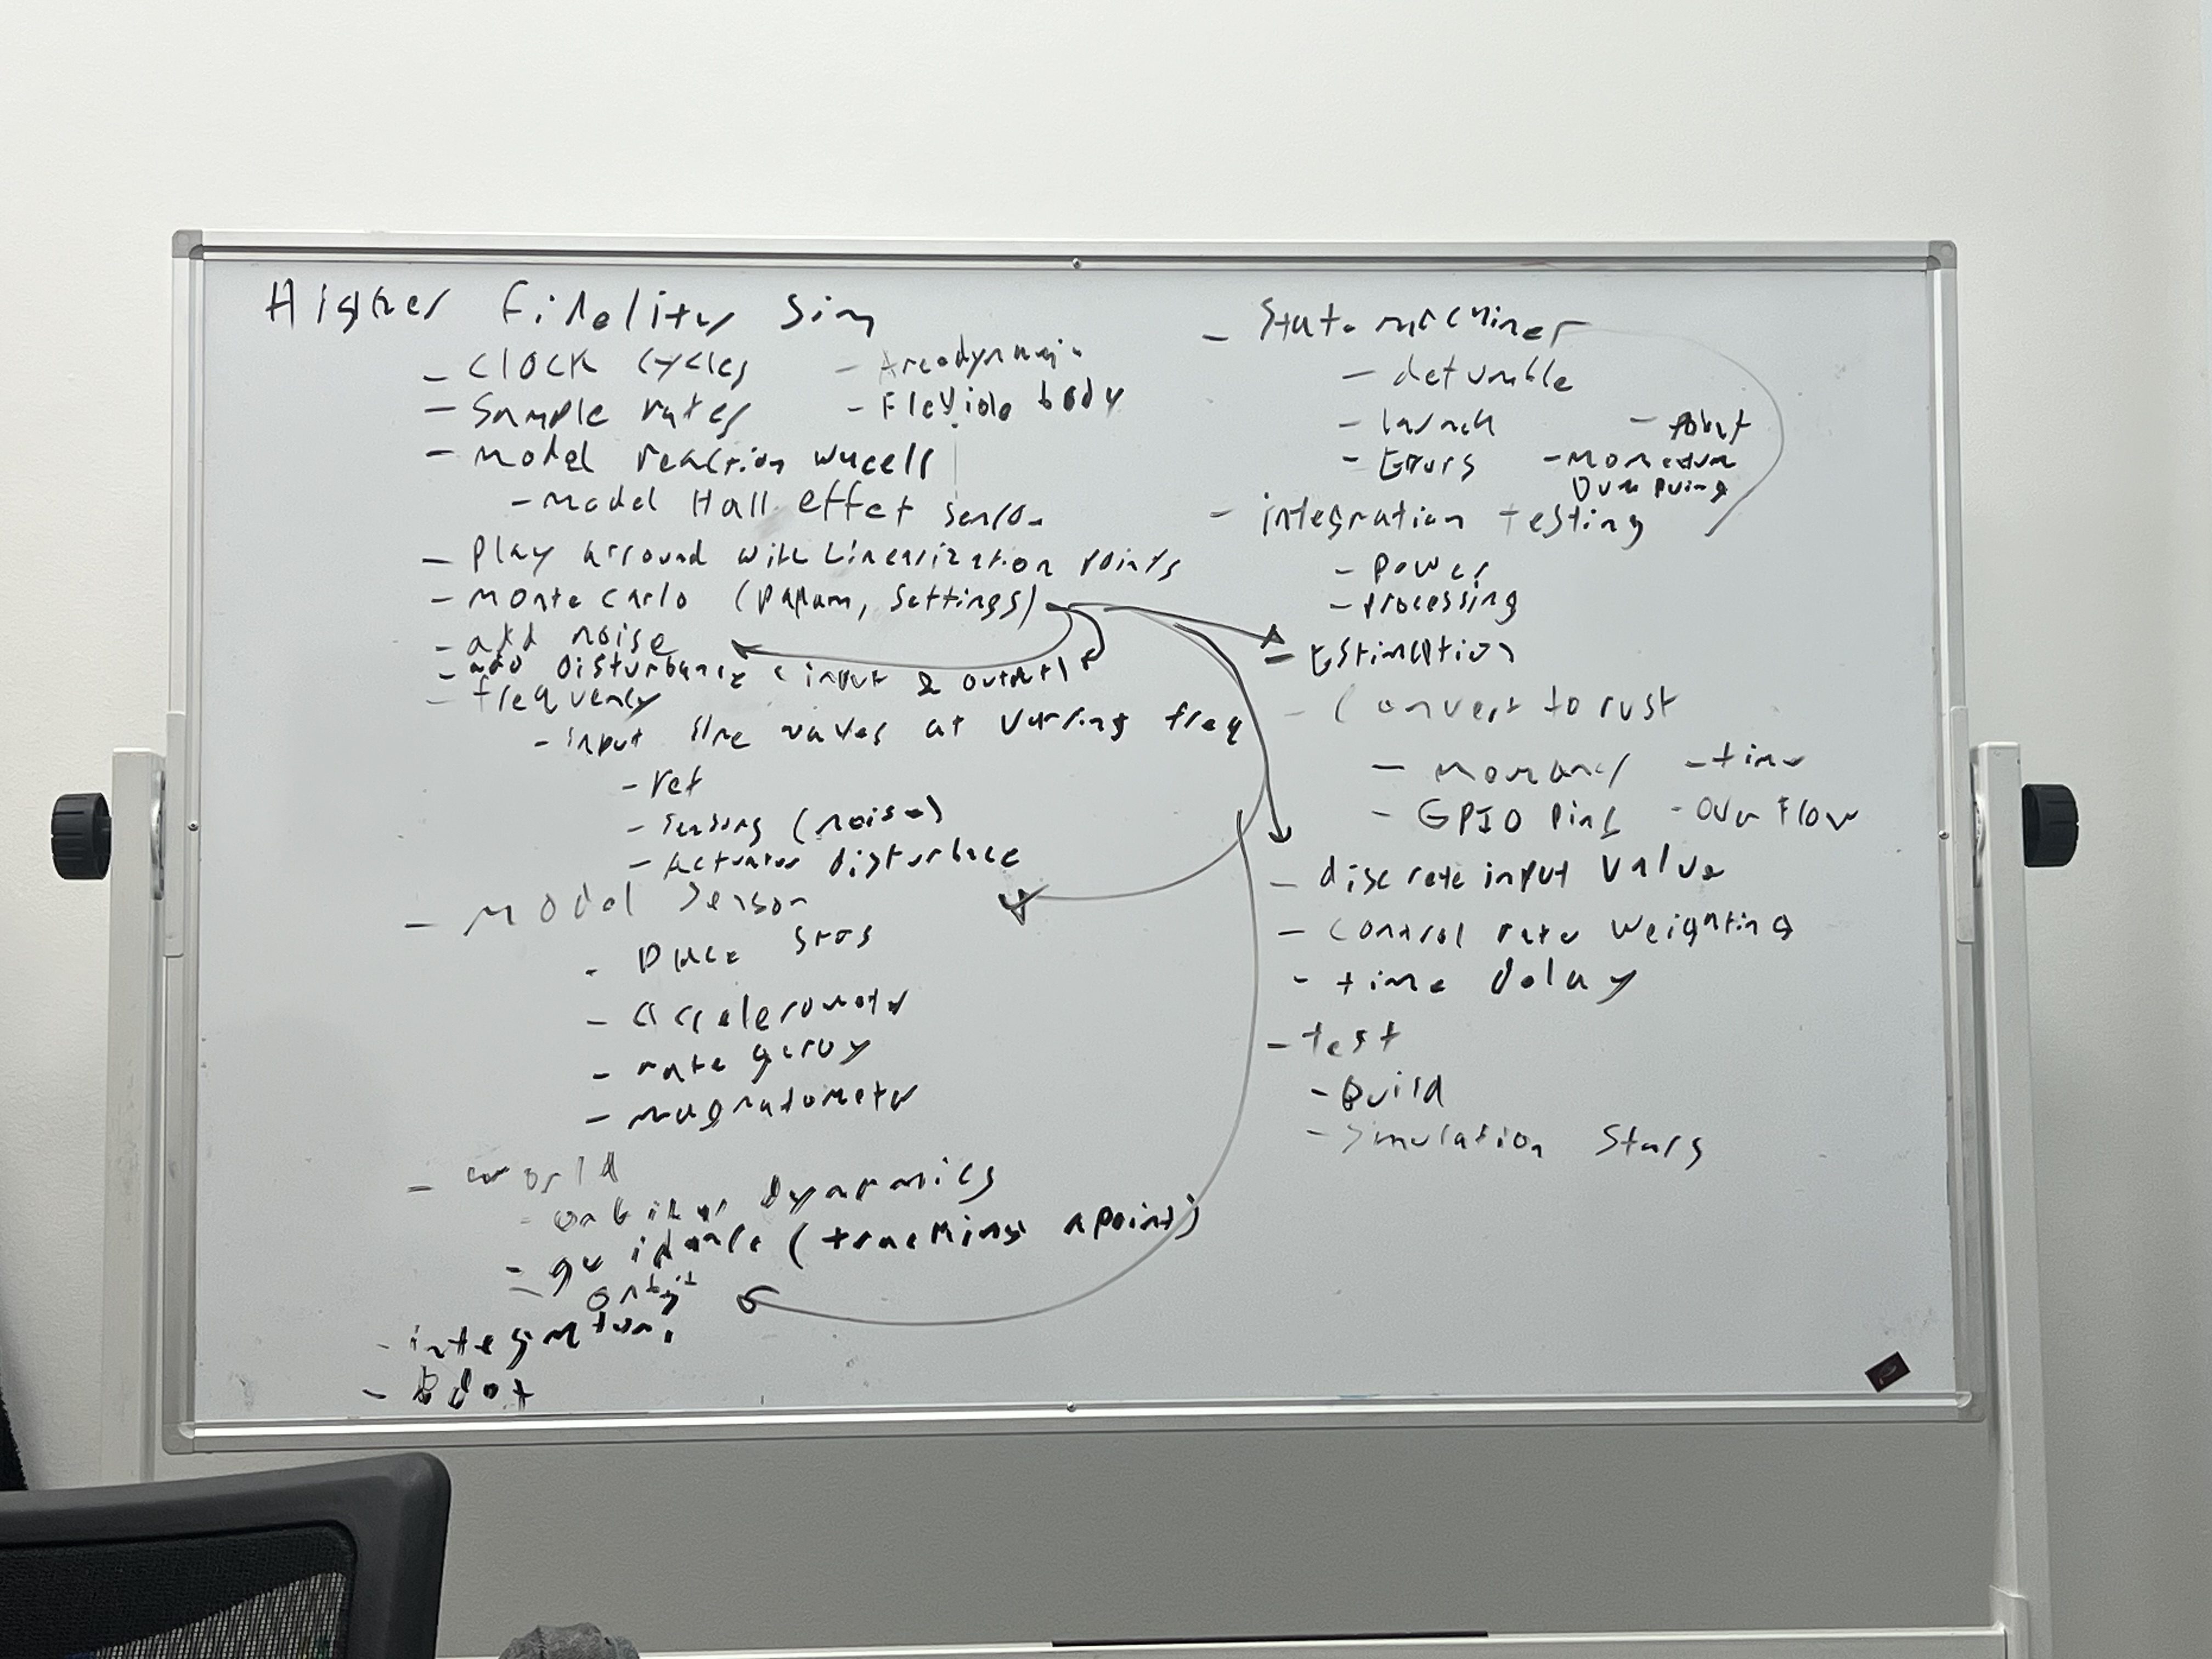 Higher Fidelity Sim
- Clock cycles
- Sample rates
- Flexible body
- Model reaction wheels
- Model Hall effect sensor
- Play arround with Linearization points
- Monte carlo (param, settings)
- add noise
- add Disturbance (input & output)
- frequency
- input sine waves at varring freq
- ref
- sensors (noise)
- Actuator Disturbance
- Model Sensor
- accelerometer
- rate gyro
- magnatometer
- world
- orbital dynamics
- guidance (tracking a point)
- orbit
- integration
- Bdot
- State machines
- detumble
- launch
- point
- Errors
- Momentum
Dumping
- integration testing
- Power
- Processing
- Estimation
- Convert to rust
- Memory
- time
- GPIO Pins
- Over Flow
- discrete input value
- Control rate weighting
- time delay
- test
- Build
- Simulation